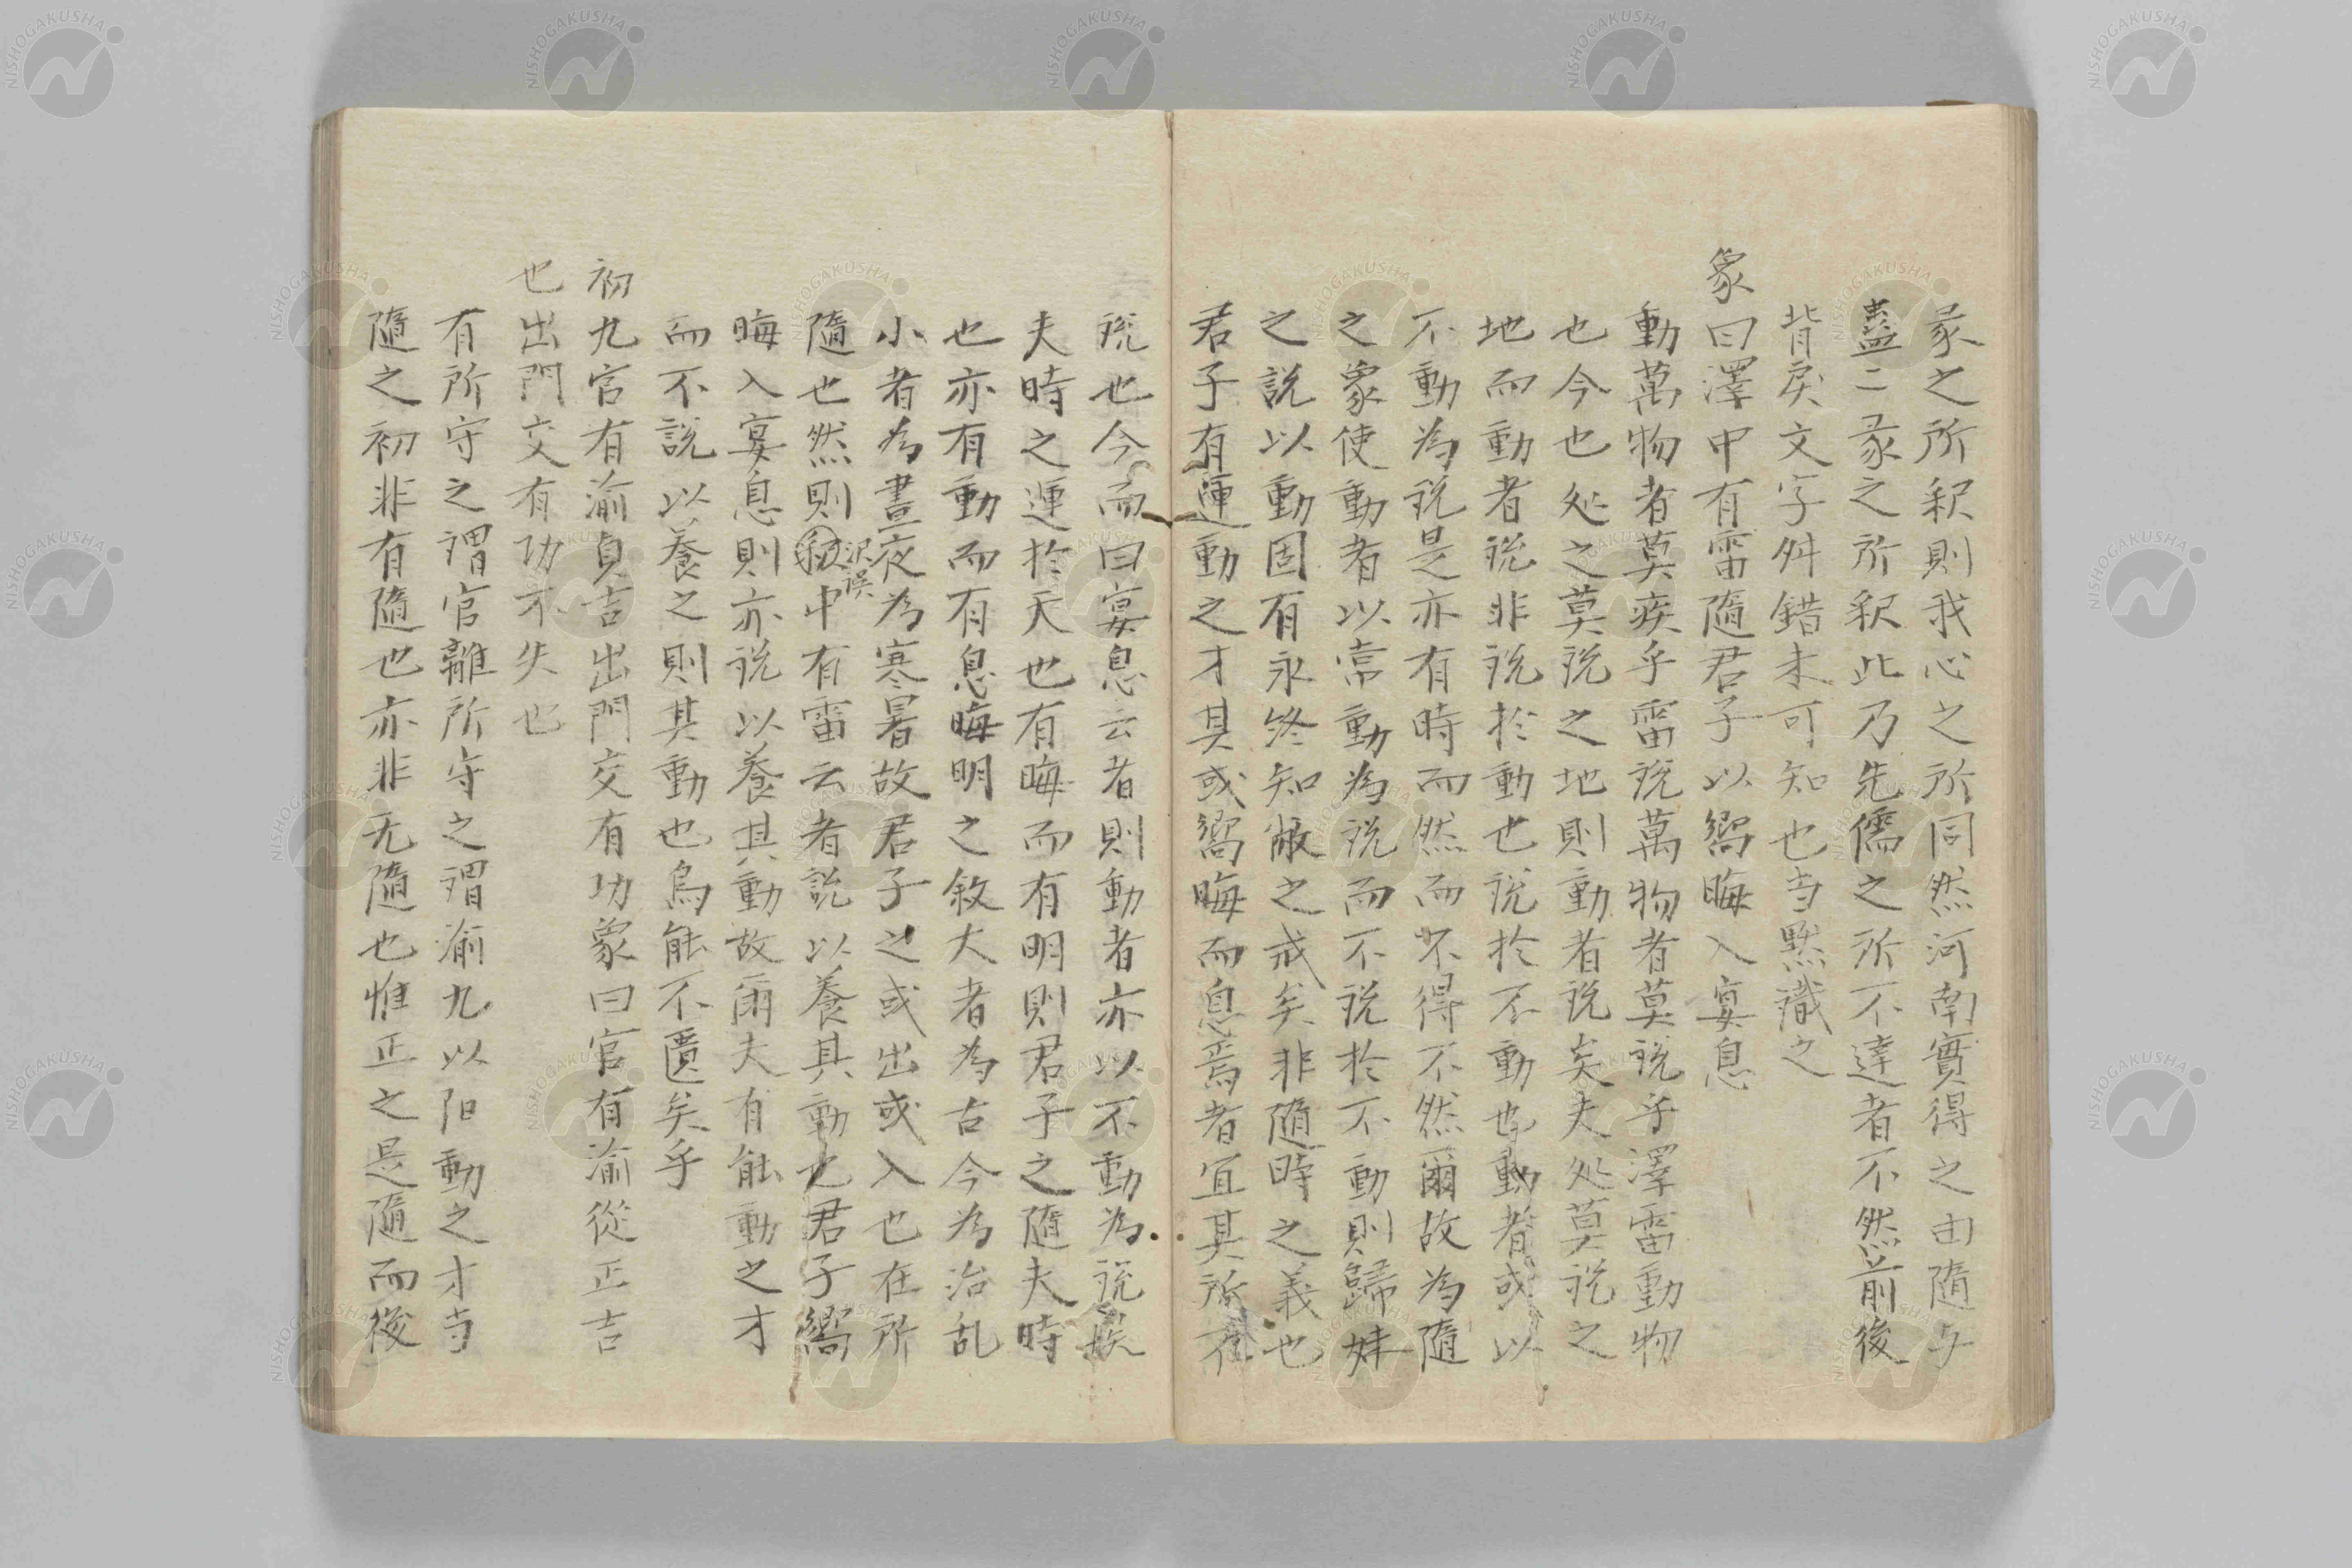 彖之所釈則我心之所同然河南實得之由隨与
蠱二彖之所釈此乃先儒之所不達者不然前後
背戻文字舛錯未可知也当黙識之
象曰澤中有雷隨君子以嚮晦入宴息
動萬物者莫疾乎雷説萬物者莫説乎澤雷動物
也今也処之莫説之地則動者説矣夫処莫説之
地而動者説非説於動也説於不動也動者或以
不動為説是亦有時而然而不得不然爾故為隨
之象使動者以常動為説而不説於不動則歸妹
之説以動固有永終知敝之戒矣非隨時之義也
君子有運動之才其或嚮晦而息焉者宜其所不
説也今而曰宴息云者則動者亦以不動為説
夫時之運於天也有晦而有明則君子之隨夫時
也亦有動而有息晦明之敘大者為古今為治乱
小者為晝夜為寒暑故君子之或出或入也在所
隨也然則叙中有雷云者説以養其動也君子嚮
沢誤
晦入宴息則亦説以養其動故爾夫有能動之才
而不説以養之則其動也烏能不匱矣乎
初九官有渝貞吉出門交有功象曰官有渝從正吉
也出門交有功不失也
有所守之謂官離所守之謂渝九以陽動之才当
隨之初非有隨也亦非无隨也惟正之是隨而後
NISHOGAKUSHA